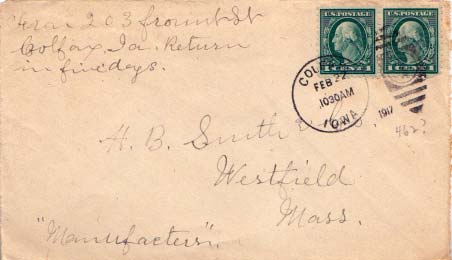 203 frount St
Colfax, Ia. Return
in five days.
U.S. POSTAGE
1 CENT 1
U.S. POSTAGE
1 CENT 1
FEB 22
1030AM
IOWA
1917
462?
H. B. Smith
Westfield
Mass.
"Manufacters".